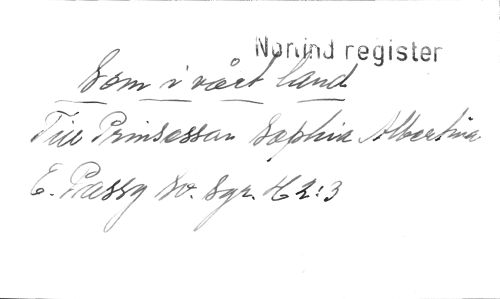 Nomind register
Som i vårt land
Till Prinsessan Sophia Albertina
E. Pressy Sv. Sgr. H2:3